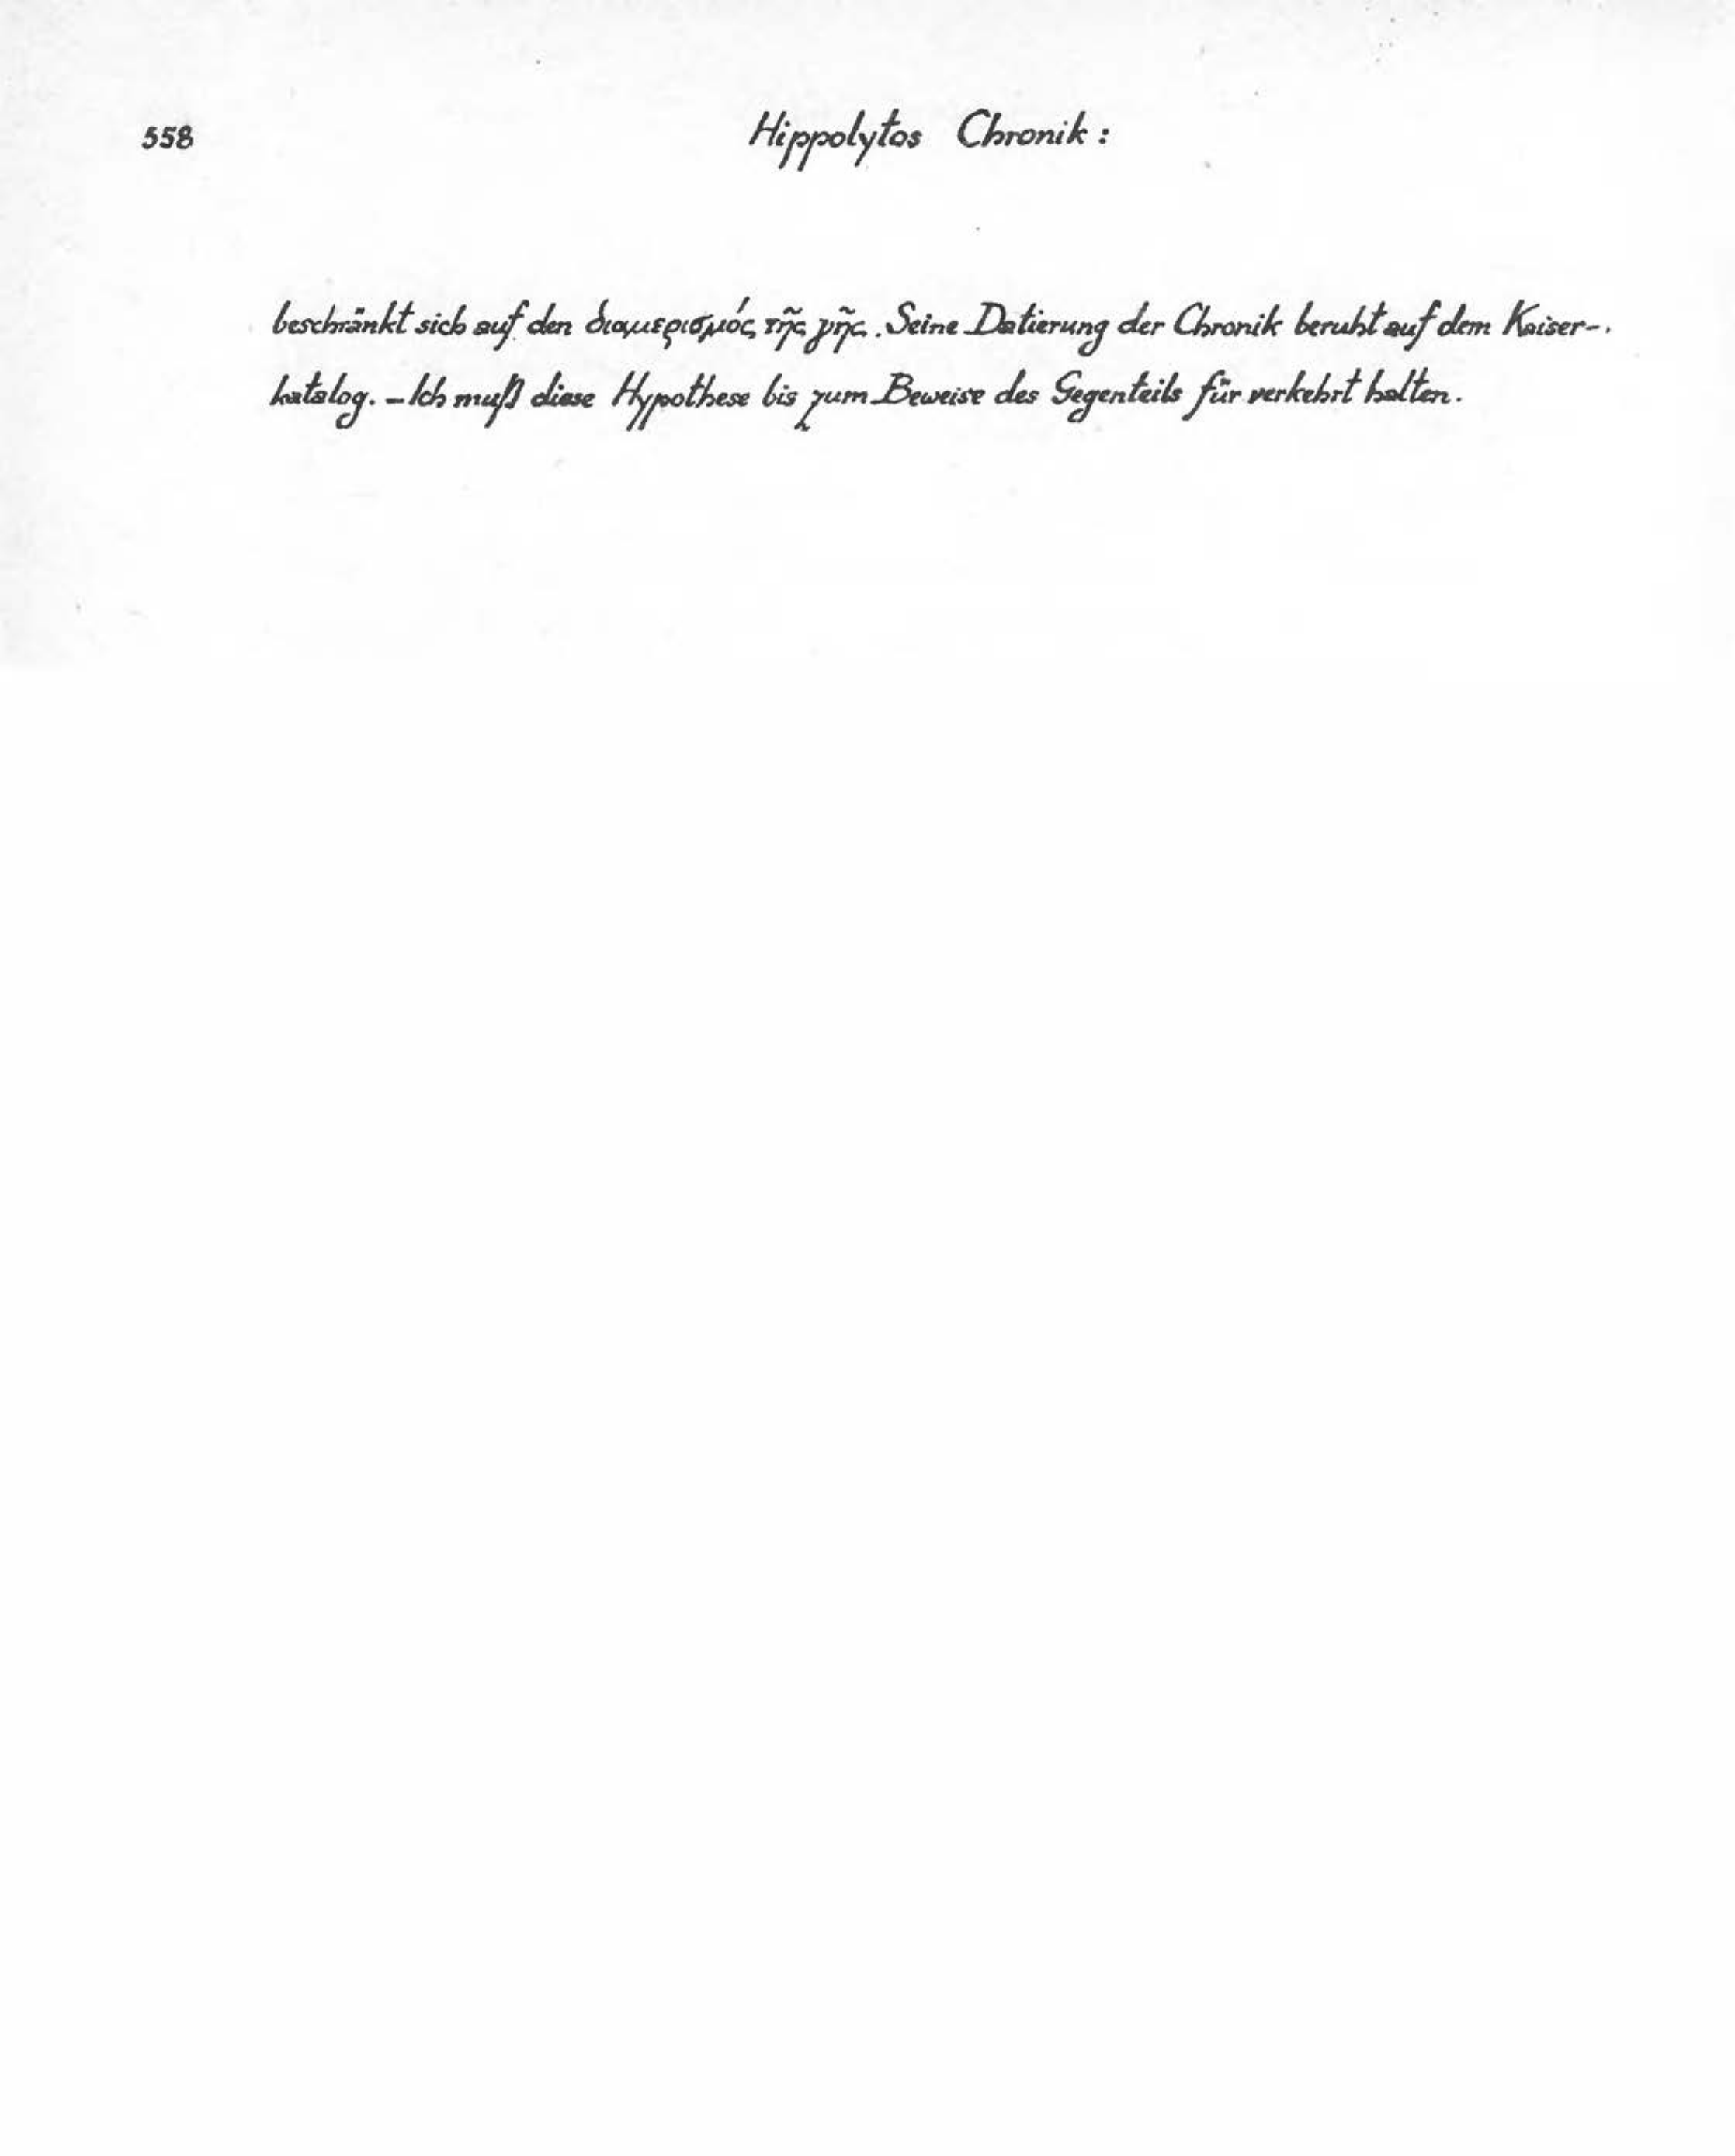 558
Hippolytos Chronik:
beschränkt sich auf den διαμερισμός τῆς γῆς. Seine Datierung der Chronik beruht auf dem Kaiser-
katalog. – Ich muß diese Hypothese bis zum Beweise des Gegenteils für verkehrt halten.